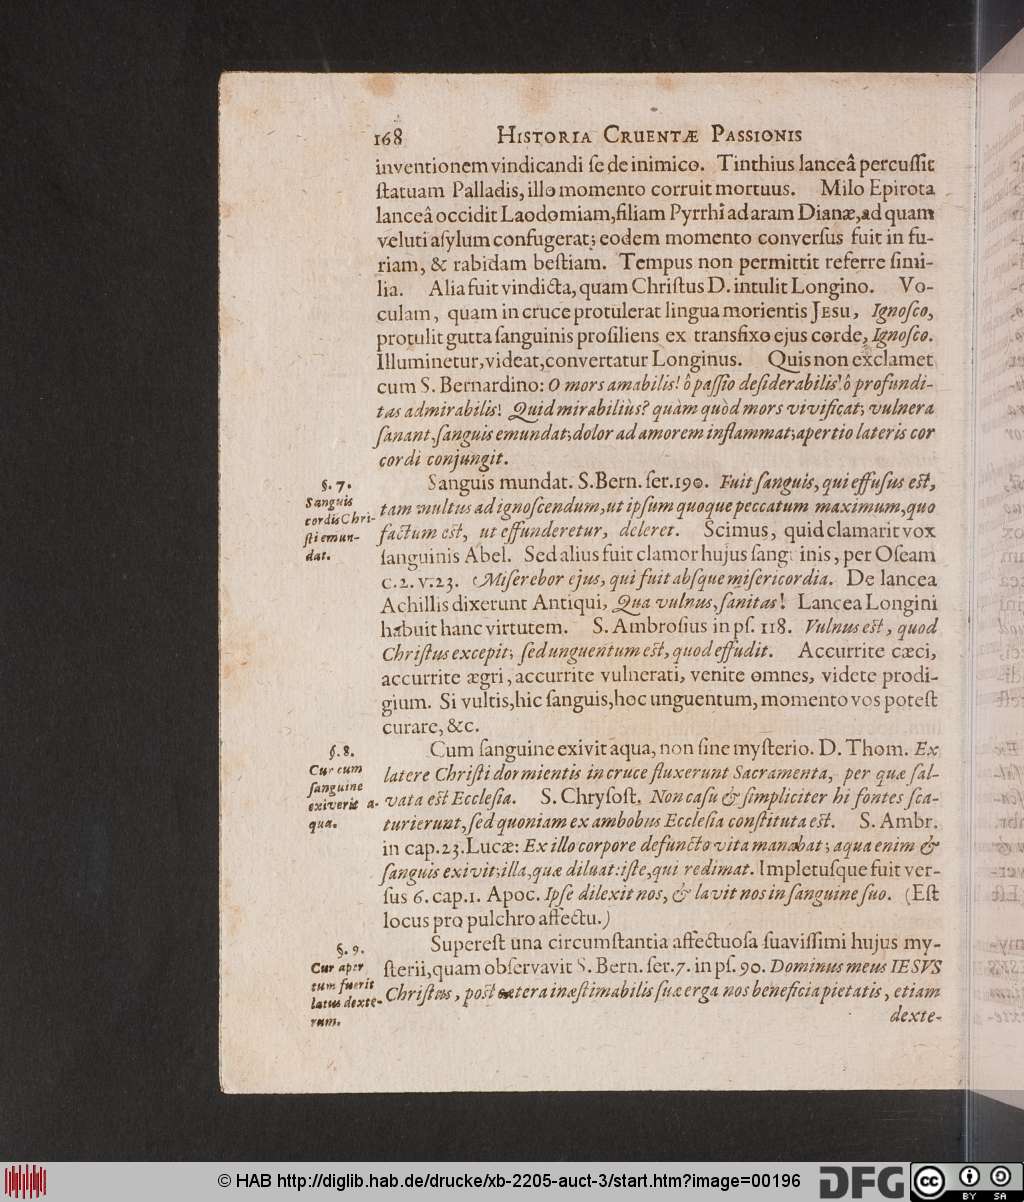 168 HISTORIA CRUENTÆ PASSIONIS
inventionem vindicandi ſe de inimico. Tinthius lanceâ percuſſit
ſtatuam Palladis, illo momento corruit mortuus. Milo Epirota
lanceâ occidit Laodomiam, filiam Pyrrhi ad aram Dianæ, ad quam
veluti aſylum confugerat; eodem momento converſus fuit in fu-
riam, & rabidam beſtiam. Tempus non permittit referre ſimi-
lia. Alia fuit vindicta, quam Chriſtus D. intulit Longino. Vo-
culam, quam in cruce protulerat lingua morientis JESU, Ignoſco,
protulit gutta ſanguinis proſiliens ex transfixo ejus corde, Ignoſco.
Illuminetur, videat, convertatur Longinus. Quis non exclamet
cum S. Bernardino: O mors amabilis! ô paſſio deſiderabilis! ô profundi-
tas admirabilis! Quid mirabiliùs? quàm quòd mors vivificat; vulnera
ſanant, ſanguis emundat; dolor ad amorem inflammat; apertio lateris cor
cordi conjungit.
§. 7.
Sanguis
cordis Chri-
ſti emun-
dat.
Sanguis mundat. S. Bern. ſer. 190. Fuit ſanguis, qui effuſus eſt,
tam multus ad ignoſcendum, ut ipſum quoque peccatum maximum, quo
factum eſt, ut effunderetur, deleret. Scimus, quid clamarit vox
ſanguinis Abel. Sed alius fuit clamor hujus ſang inis, per Oſeam
c. 2. v. 23. Miſerebor ejus, qui fuit abſque miſericordia. De lancea
Achillis dixerunt Antiqui, Qua vulnus, ſanitas! Lancea Longini
habuit hanc virtutem. S. Ambroſius in pſ. 118. Vulnus eſt, quod
Chriſtus excepit; ſed unguentum eſt, quod effudit. Accurrite cæci,
accurrite ægri, accurrite vulnerati, venite omnes, videte prodi-
gium. Si vultis, hic ſanguis, hoc unguentum, momento vos poteſt
curare, &c.
§. 8.
Cur cum
ſanguine
exiverit a-
qua.
Cum ſanguine exivit aqua, non ſine myſterio. D. Thom. Ex
latere Chriſti dormientis in cruce fluxerunt Sacramenta, per quæ ſal-
vata eſt Eccleſia. S. Chryſoſt. Non caſu & ſimpliciter hi fontes ſca-
turierunt, ſed quoniam ex ambobus Eccleſia conſtituta eſt. S. Ambr.
in cap. 23. Lucæ: Ex illo corpore defuncto vita manabat; aqua enim &
ſanguis exivit; illa, quæ diluat: iſte, qui redimat. Impletuſque fuit ver-
ſus 6. cap. 1. Apoc. Ipſe dilexit nos, & lavit nos in ſanguine ſuo. (Eſt
locus pro pulchro affectu.)
§. 9.
Cur aper
tum fuerit
latus dexte-
rum.
Supereſt una circumſtantia affectuoſa ſuaviſſimi hujus my-
ſterii, quam obſervavit S. Bern. ſer. 7. in pſ. 90. Dominus meus IESVS
Chriſtus, poſt cætera inæſtimabilis ſuæ erga nos beneficia pietatis, etiam
dexte-
© HAB http://diglib.hab.de/drucke/xb-2205-auct-3/start.htm?image=00196
DFG
cc
BY SA